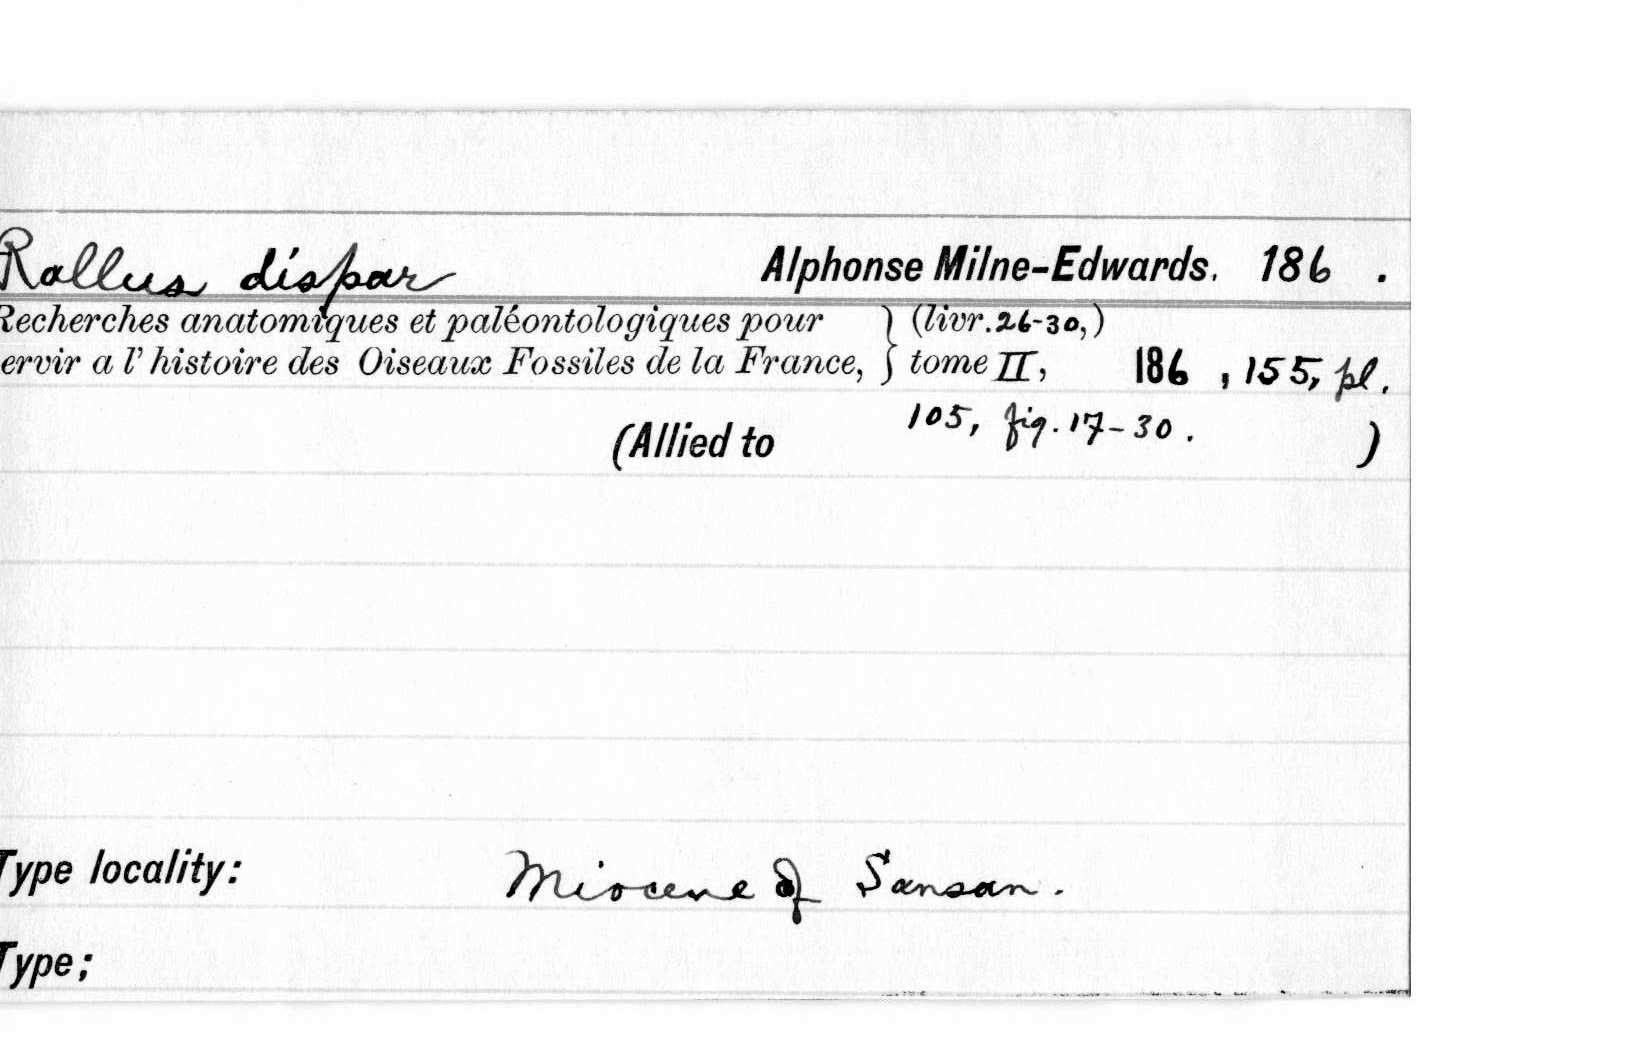 Rallus dispar Alphonse Milne-Edwards. 186 .
Recherches anatomiques et paléontologiques pour } (livr. 26-30,)
ervir a l' histoire des Oiseaux Fossiles de la France, } tome II, 186 , 155, pl.
105, fig. 17-30.
(Allied to )
Type locality: Miocene of Sansan.
Type;